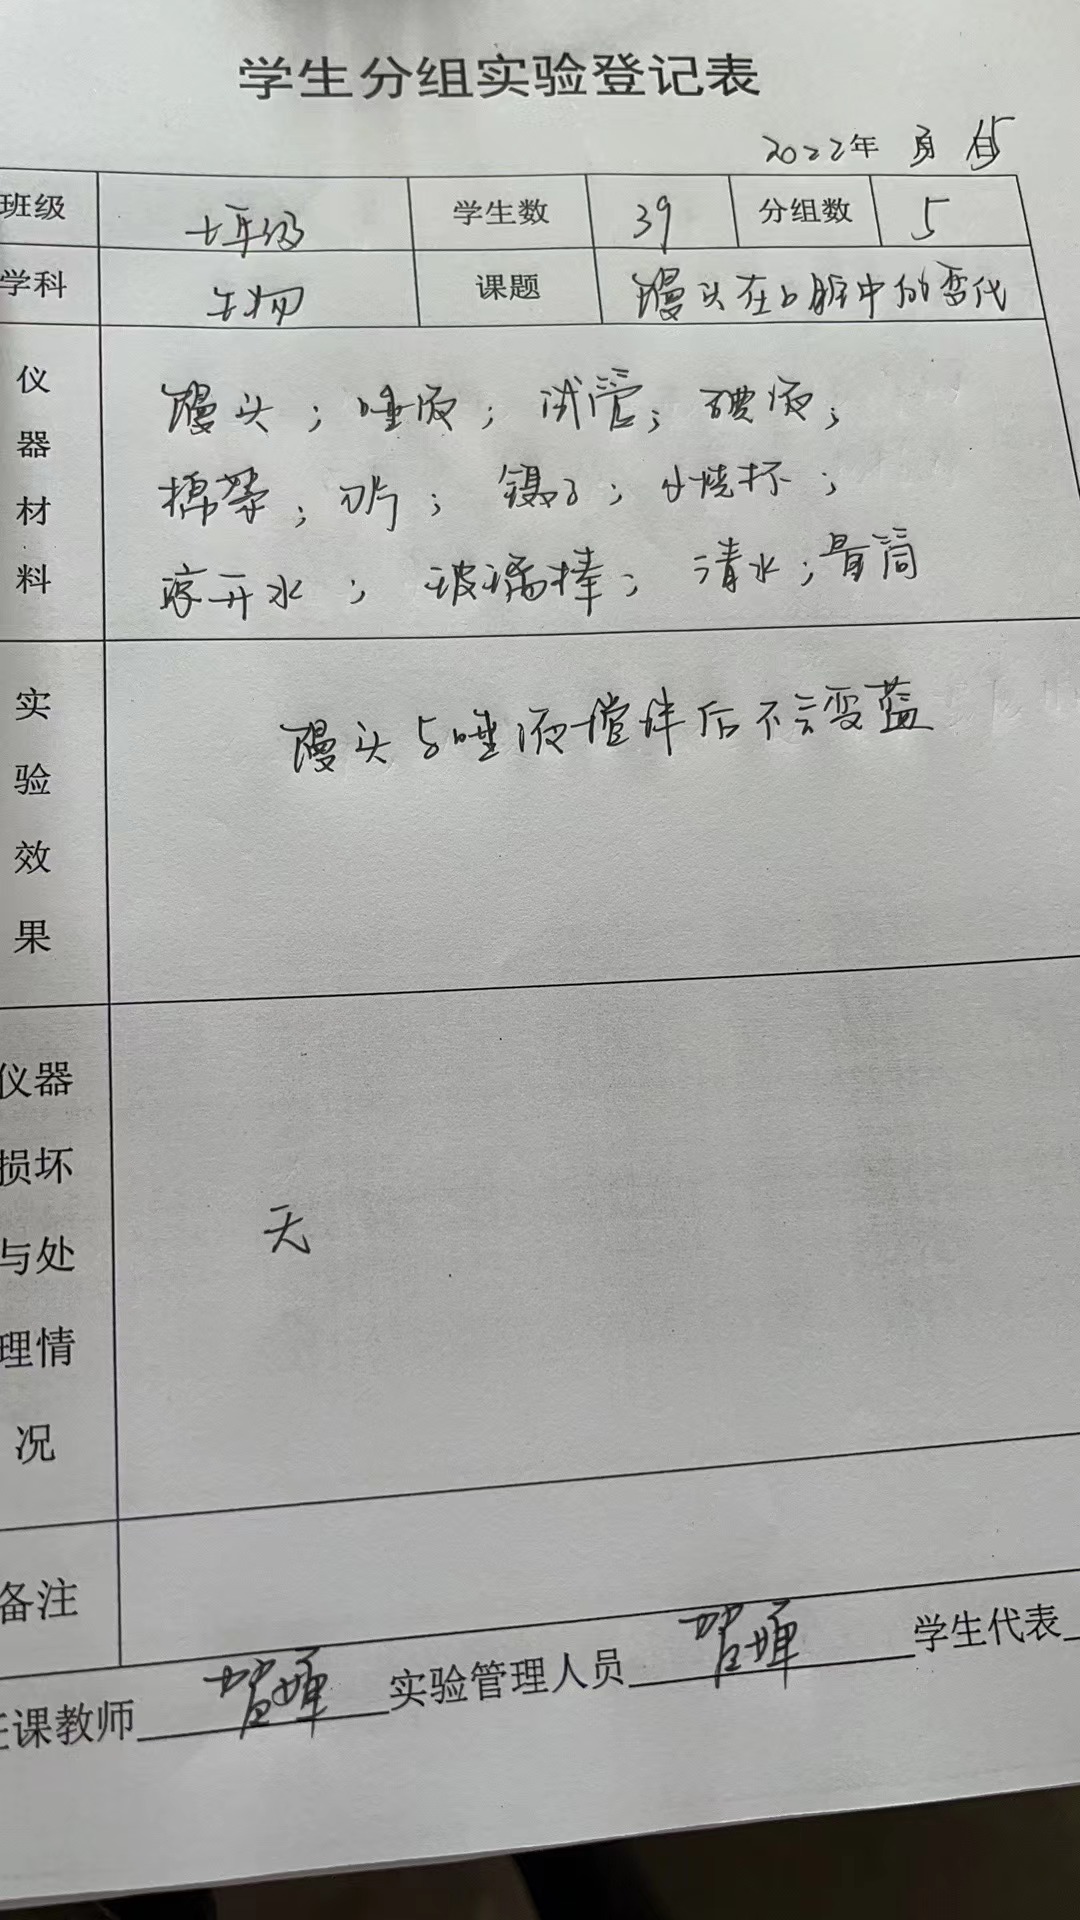 学生分组实验登记表
2022年 月 日
班级 七年级 学生数 39 分组数 5
学科 生物 课题 馒头在口腔中的变化
仪器材料
馒头; 唾液; 试管; 碘液;
棉絮; 刀片; 镊子; 小烧杯;
凉开水; 玻璃棒; 清水; 量筒
实验效果
馒头与唾液搅拌后不会变蓝
仪器损坏与处理情况
无
备注
任课教师 实验管理人员 学生代表